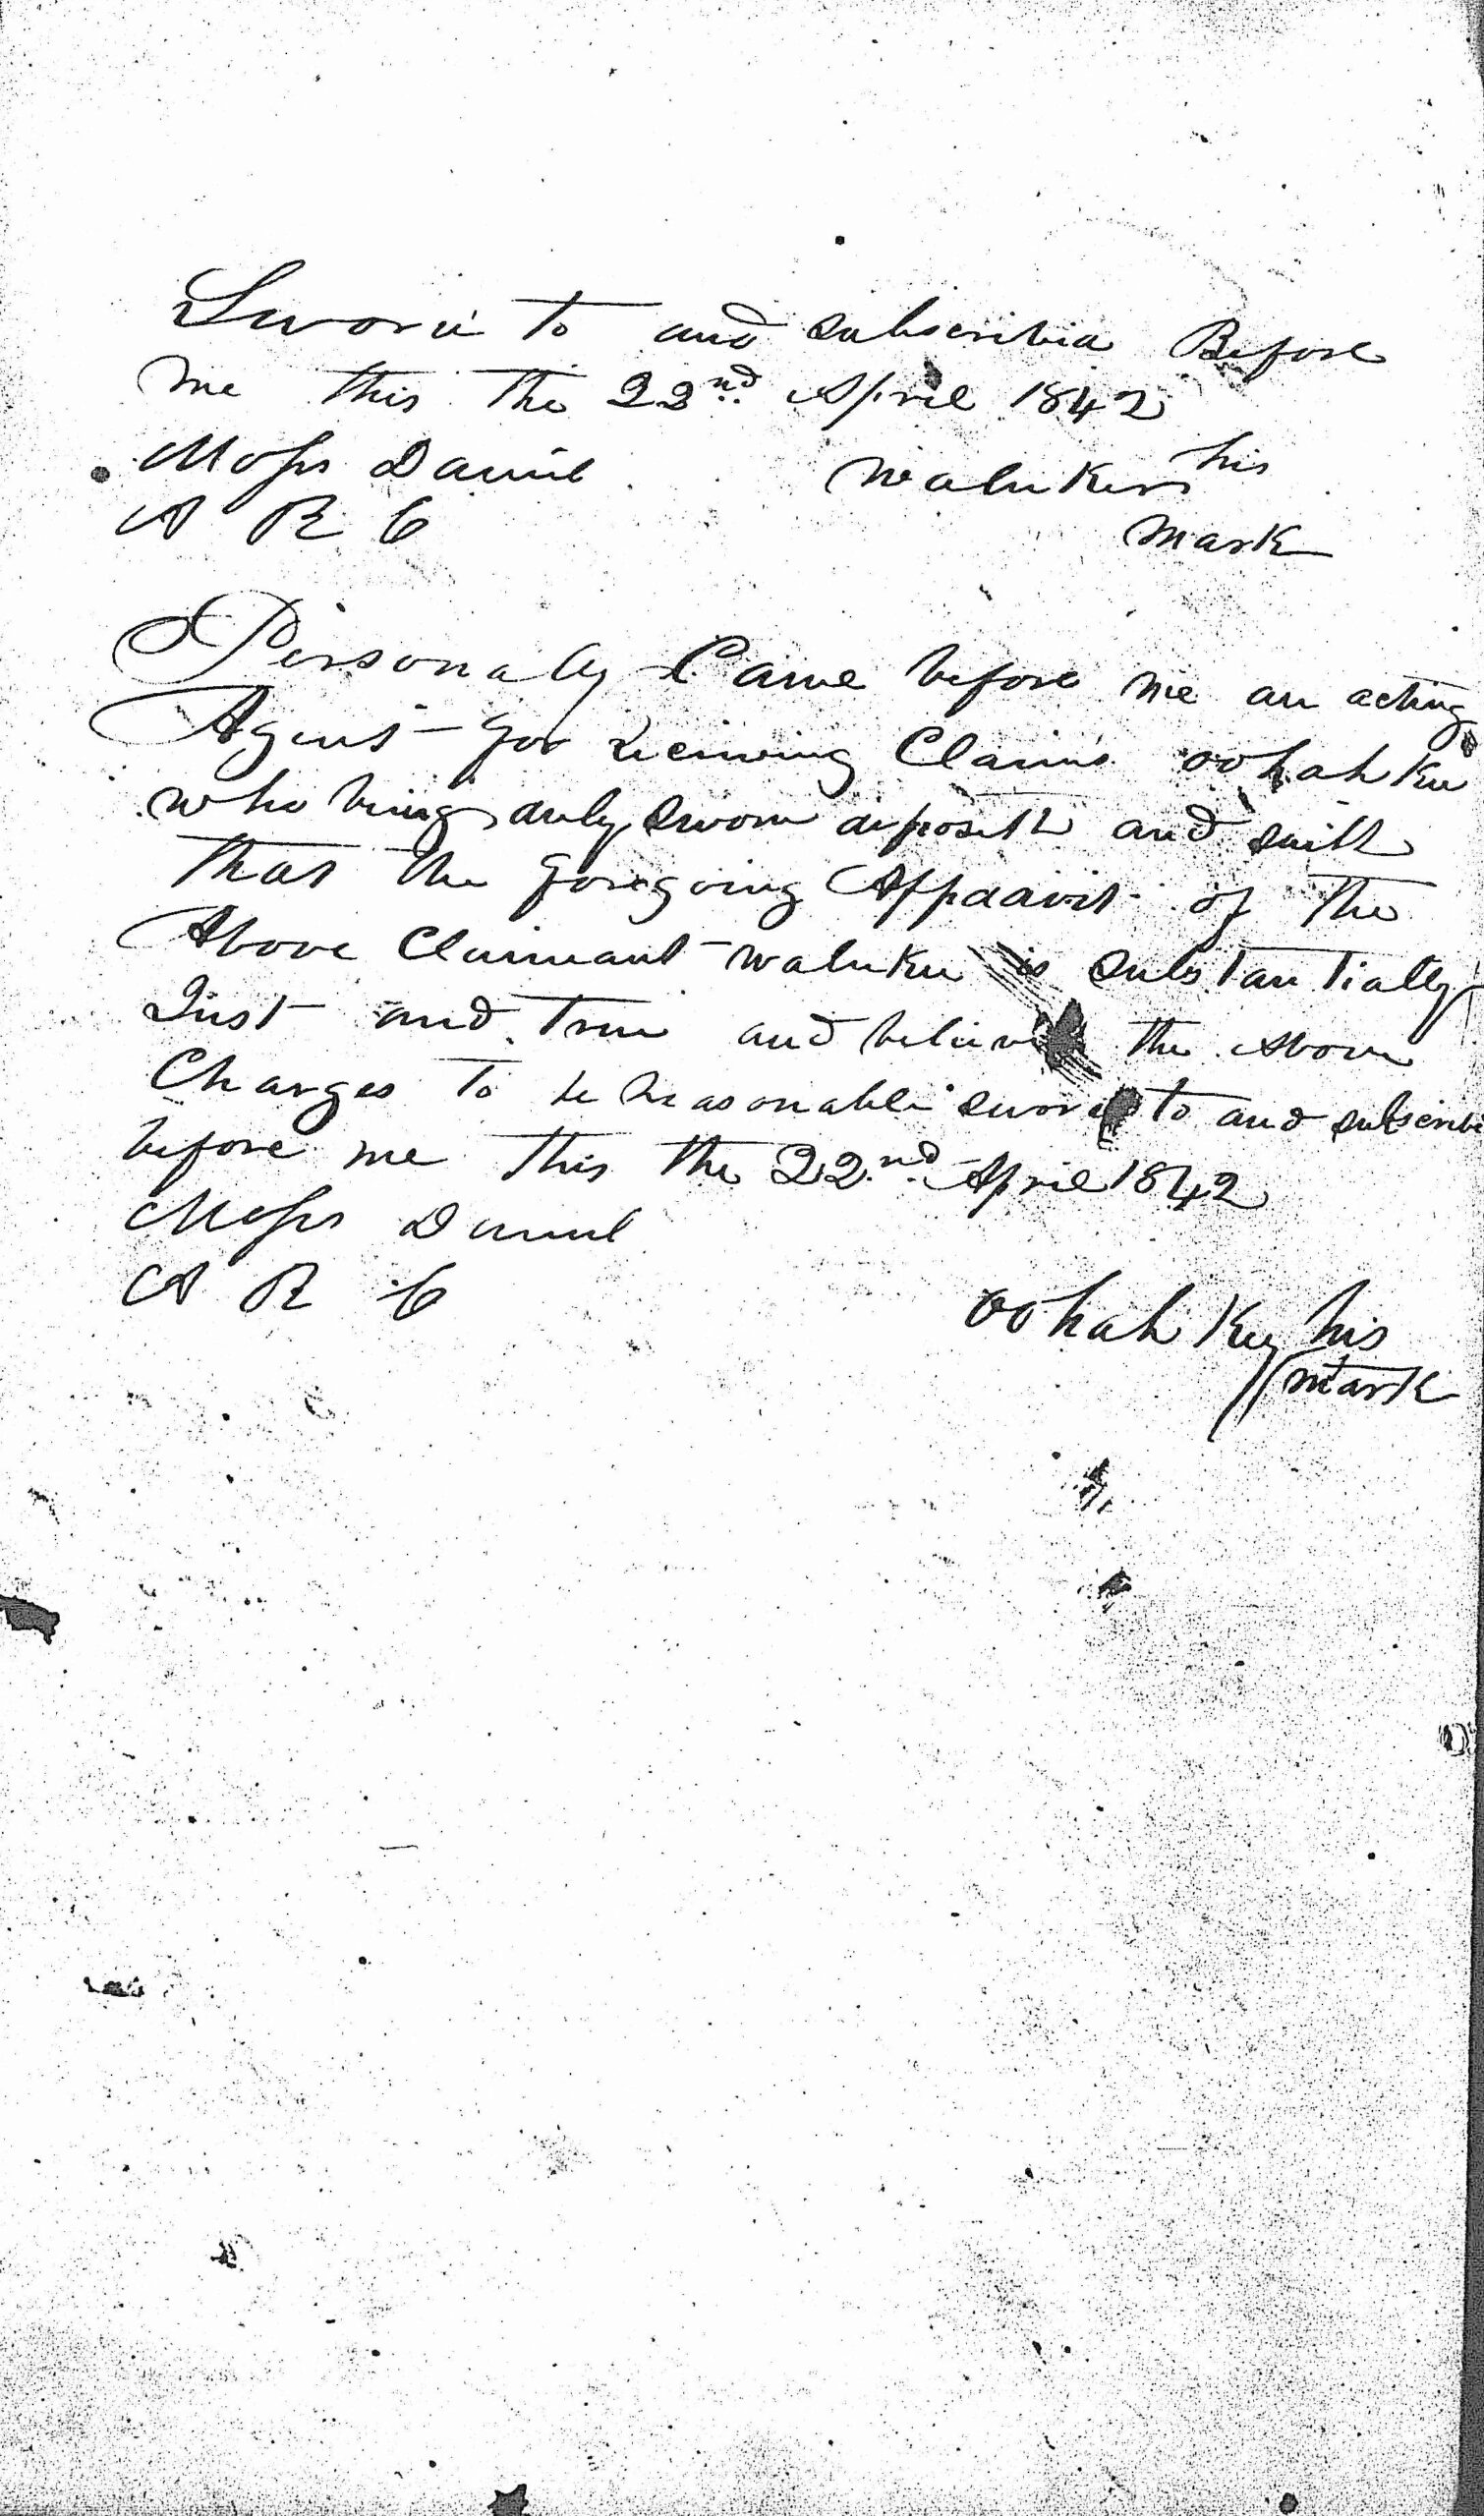 Sworn to and subscribed Before
me this the 22nd April 1842
Moses Daniel his
A R C mark
Personally Came before me an acting
Agent for receiving Claims oohahkee
who being duly sworn deposeth and saith
that the foregoing Affidavit of the
Above Claimant walukee is substantially
Just and True and believe the above
Charges To be reasonable sworn to and subscribe
before me this the 22nd April 1842
Moses Daniel
A R C
oohahkee his
mark